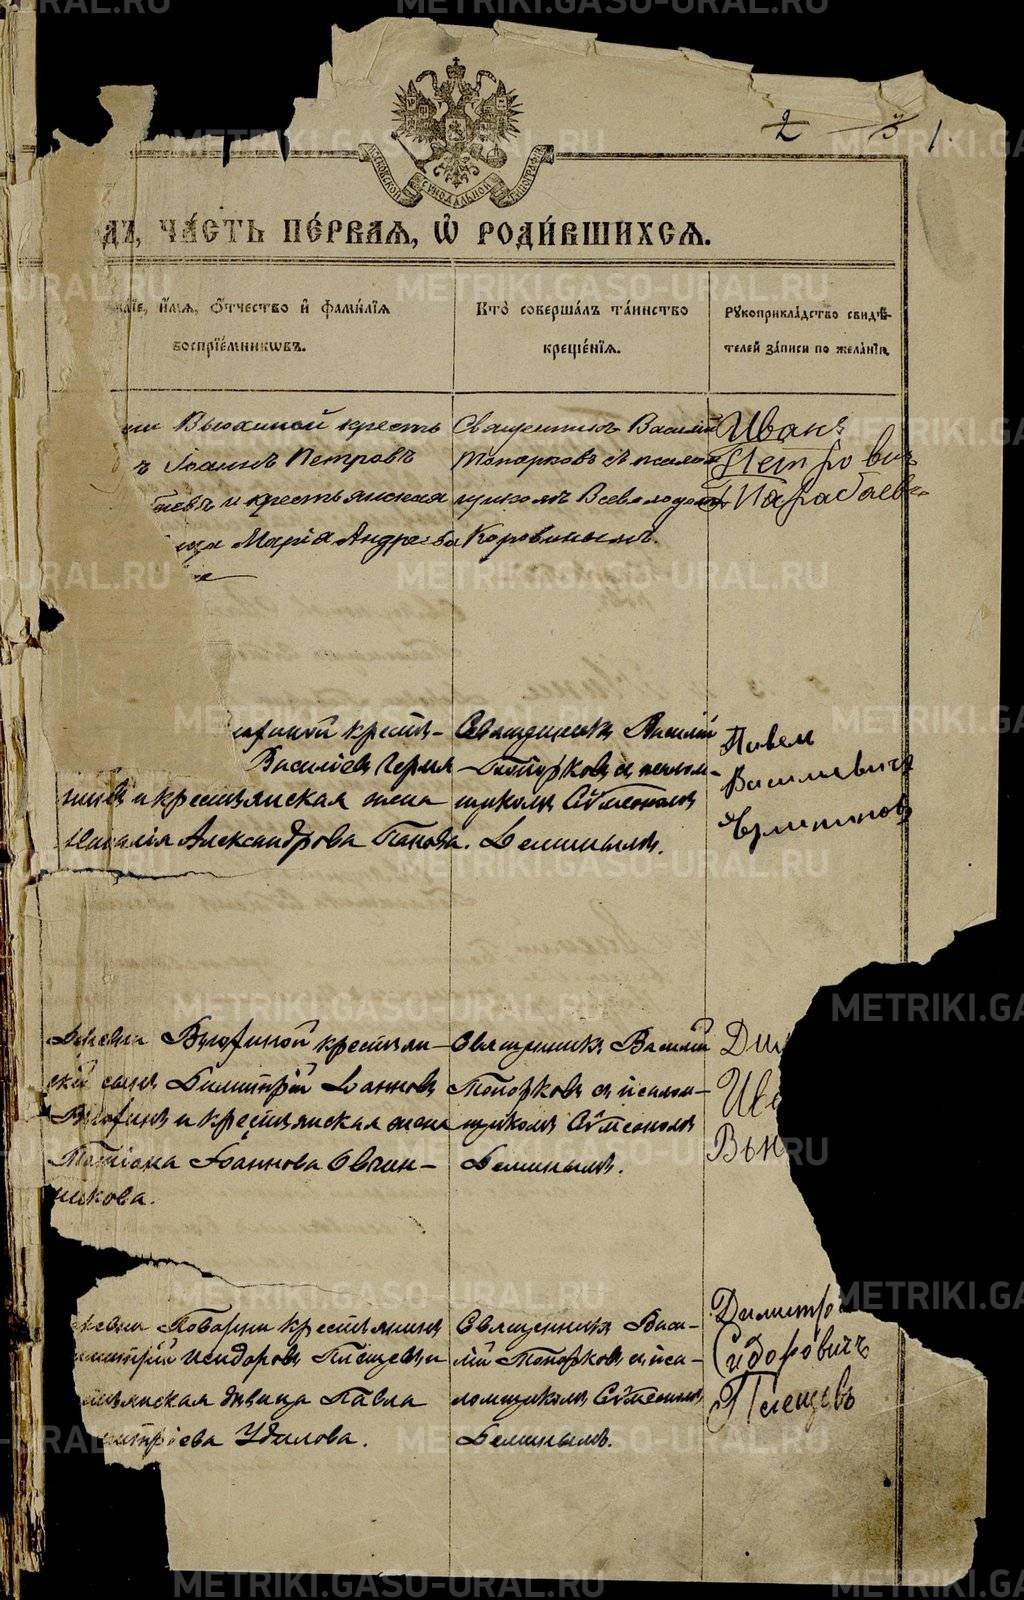 2 3 1
МОСКОВСКОЙ СѴНОДАЛЬНОЙ ТИПОГРАФІИ
ДЪ, ЧА́СТЬ ПЕ́РВАЯ, Ѡ҆ РОДИ́ВШИХСЯ.
и҆́мѧ, ѻ҆́тчество и҆ фами́лїѧ
воспрїе́мникѡвъ.
Кто̀ соверша́лъ та́инство
креще́нїѧ.
Рꙋкоприкла́дство свидѣ́-
телей за́писи по жела́нїю.
Вьюхиной кресть
ъ Іоаннъ Петровъ
евъ и крестьянская
ица Марія Андреева
Священникъ Василій
Топорковъ съ псалом
щикомъ Всеволодомъ
Коровинымъ.
Иванъ
Петрович
Карабаевъ
крестья-
Василіевъ Черня-
и крестьянская жена
Наталія Александрова Панова.
Священникъ Василій
Топорковъ съ псалом-
щикомъ Сѵмеономъ
Беминымъ.
Павел
Василиевичъ
Деревни Вьюхиной крестьян-
скій сынъ Димитрій Іоанновъ
Вьюхинъ и крестьянская жена
Татіана Іоаннова Овчин-
никова.
Священникъ Василій
Топорковъ съ псалом-
щикомъ Сѵмеономъ
Беминымъ.
Ди
Ив
Вьн
евни Поварни крестьянинъ
имитрій Исидоровъ Пленцевъ и
тьянская дѣвица Павла
итріева Удилова.
Священникъ Васи-
лій Топорковъ съ пса-
ломщикомъ Сѵмеономъ
Беминымъ.
Димитро
Сидоровичъ
Пленцевъ
METRIKI.GASO-URAL.RU